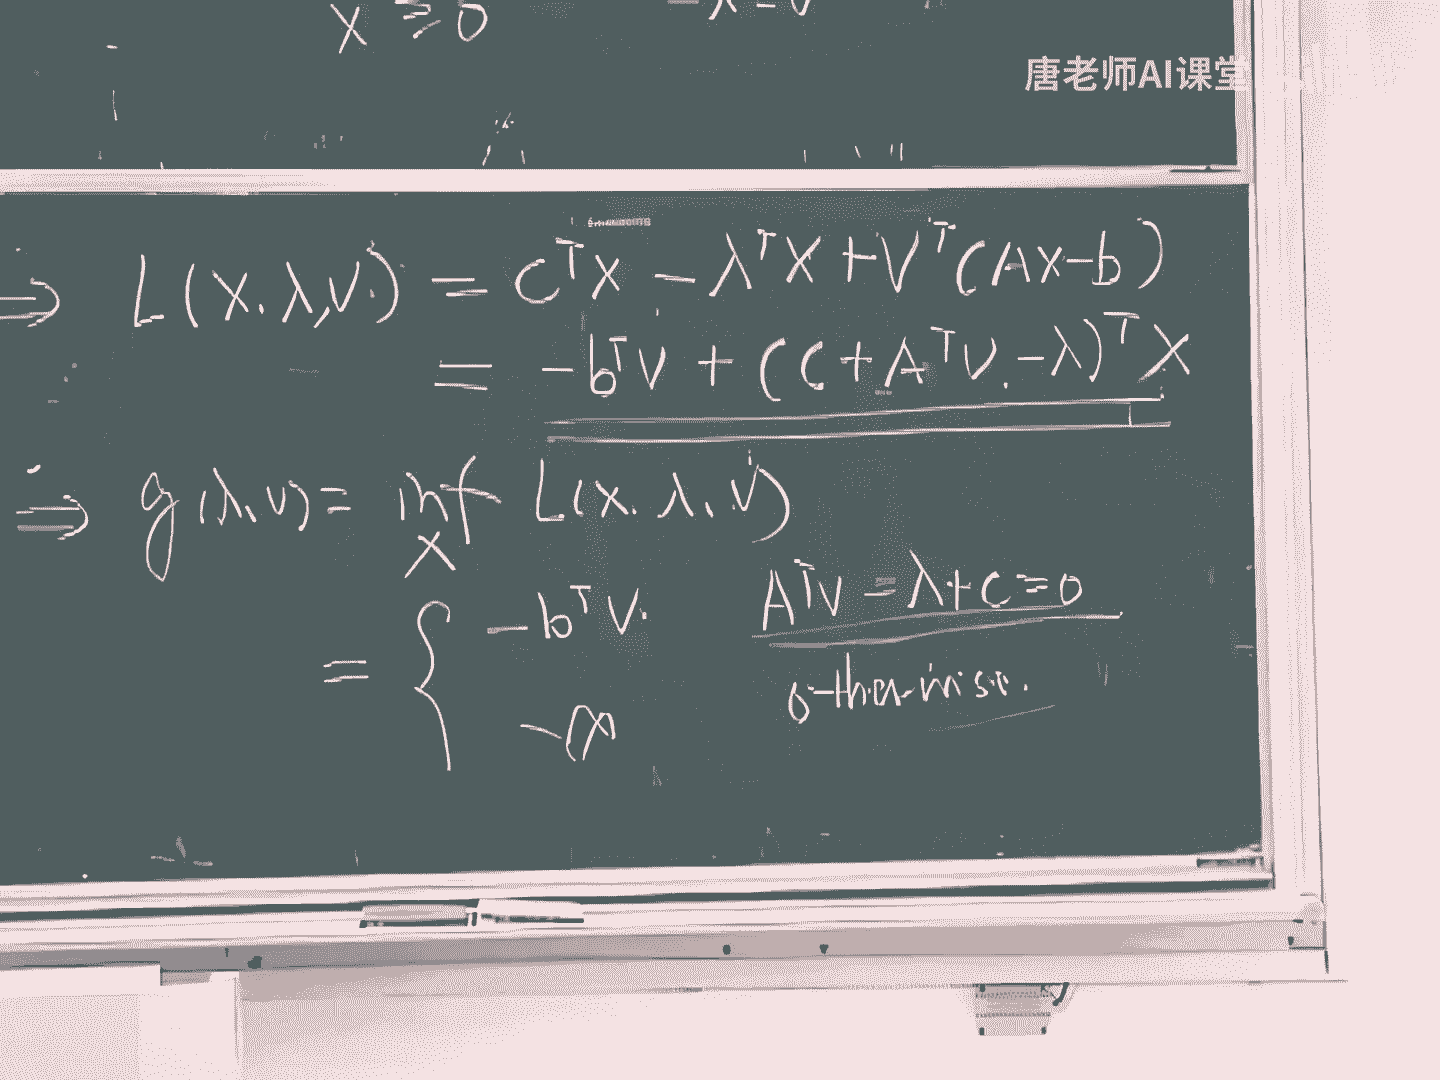 x ≥ 0
唐老师AI课堂
⇒ L(x, λ, v) = cᵀx − λᵀx + vᵀ(Ax−b)
= −bᵀv + (c + Aᵀv − λ)ᵀx
⇒ g(λ, v) = inf L(x, λ, v)
x
= { −bᵀv Aᵀv − λ + c = 0
−∞ otherwise.